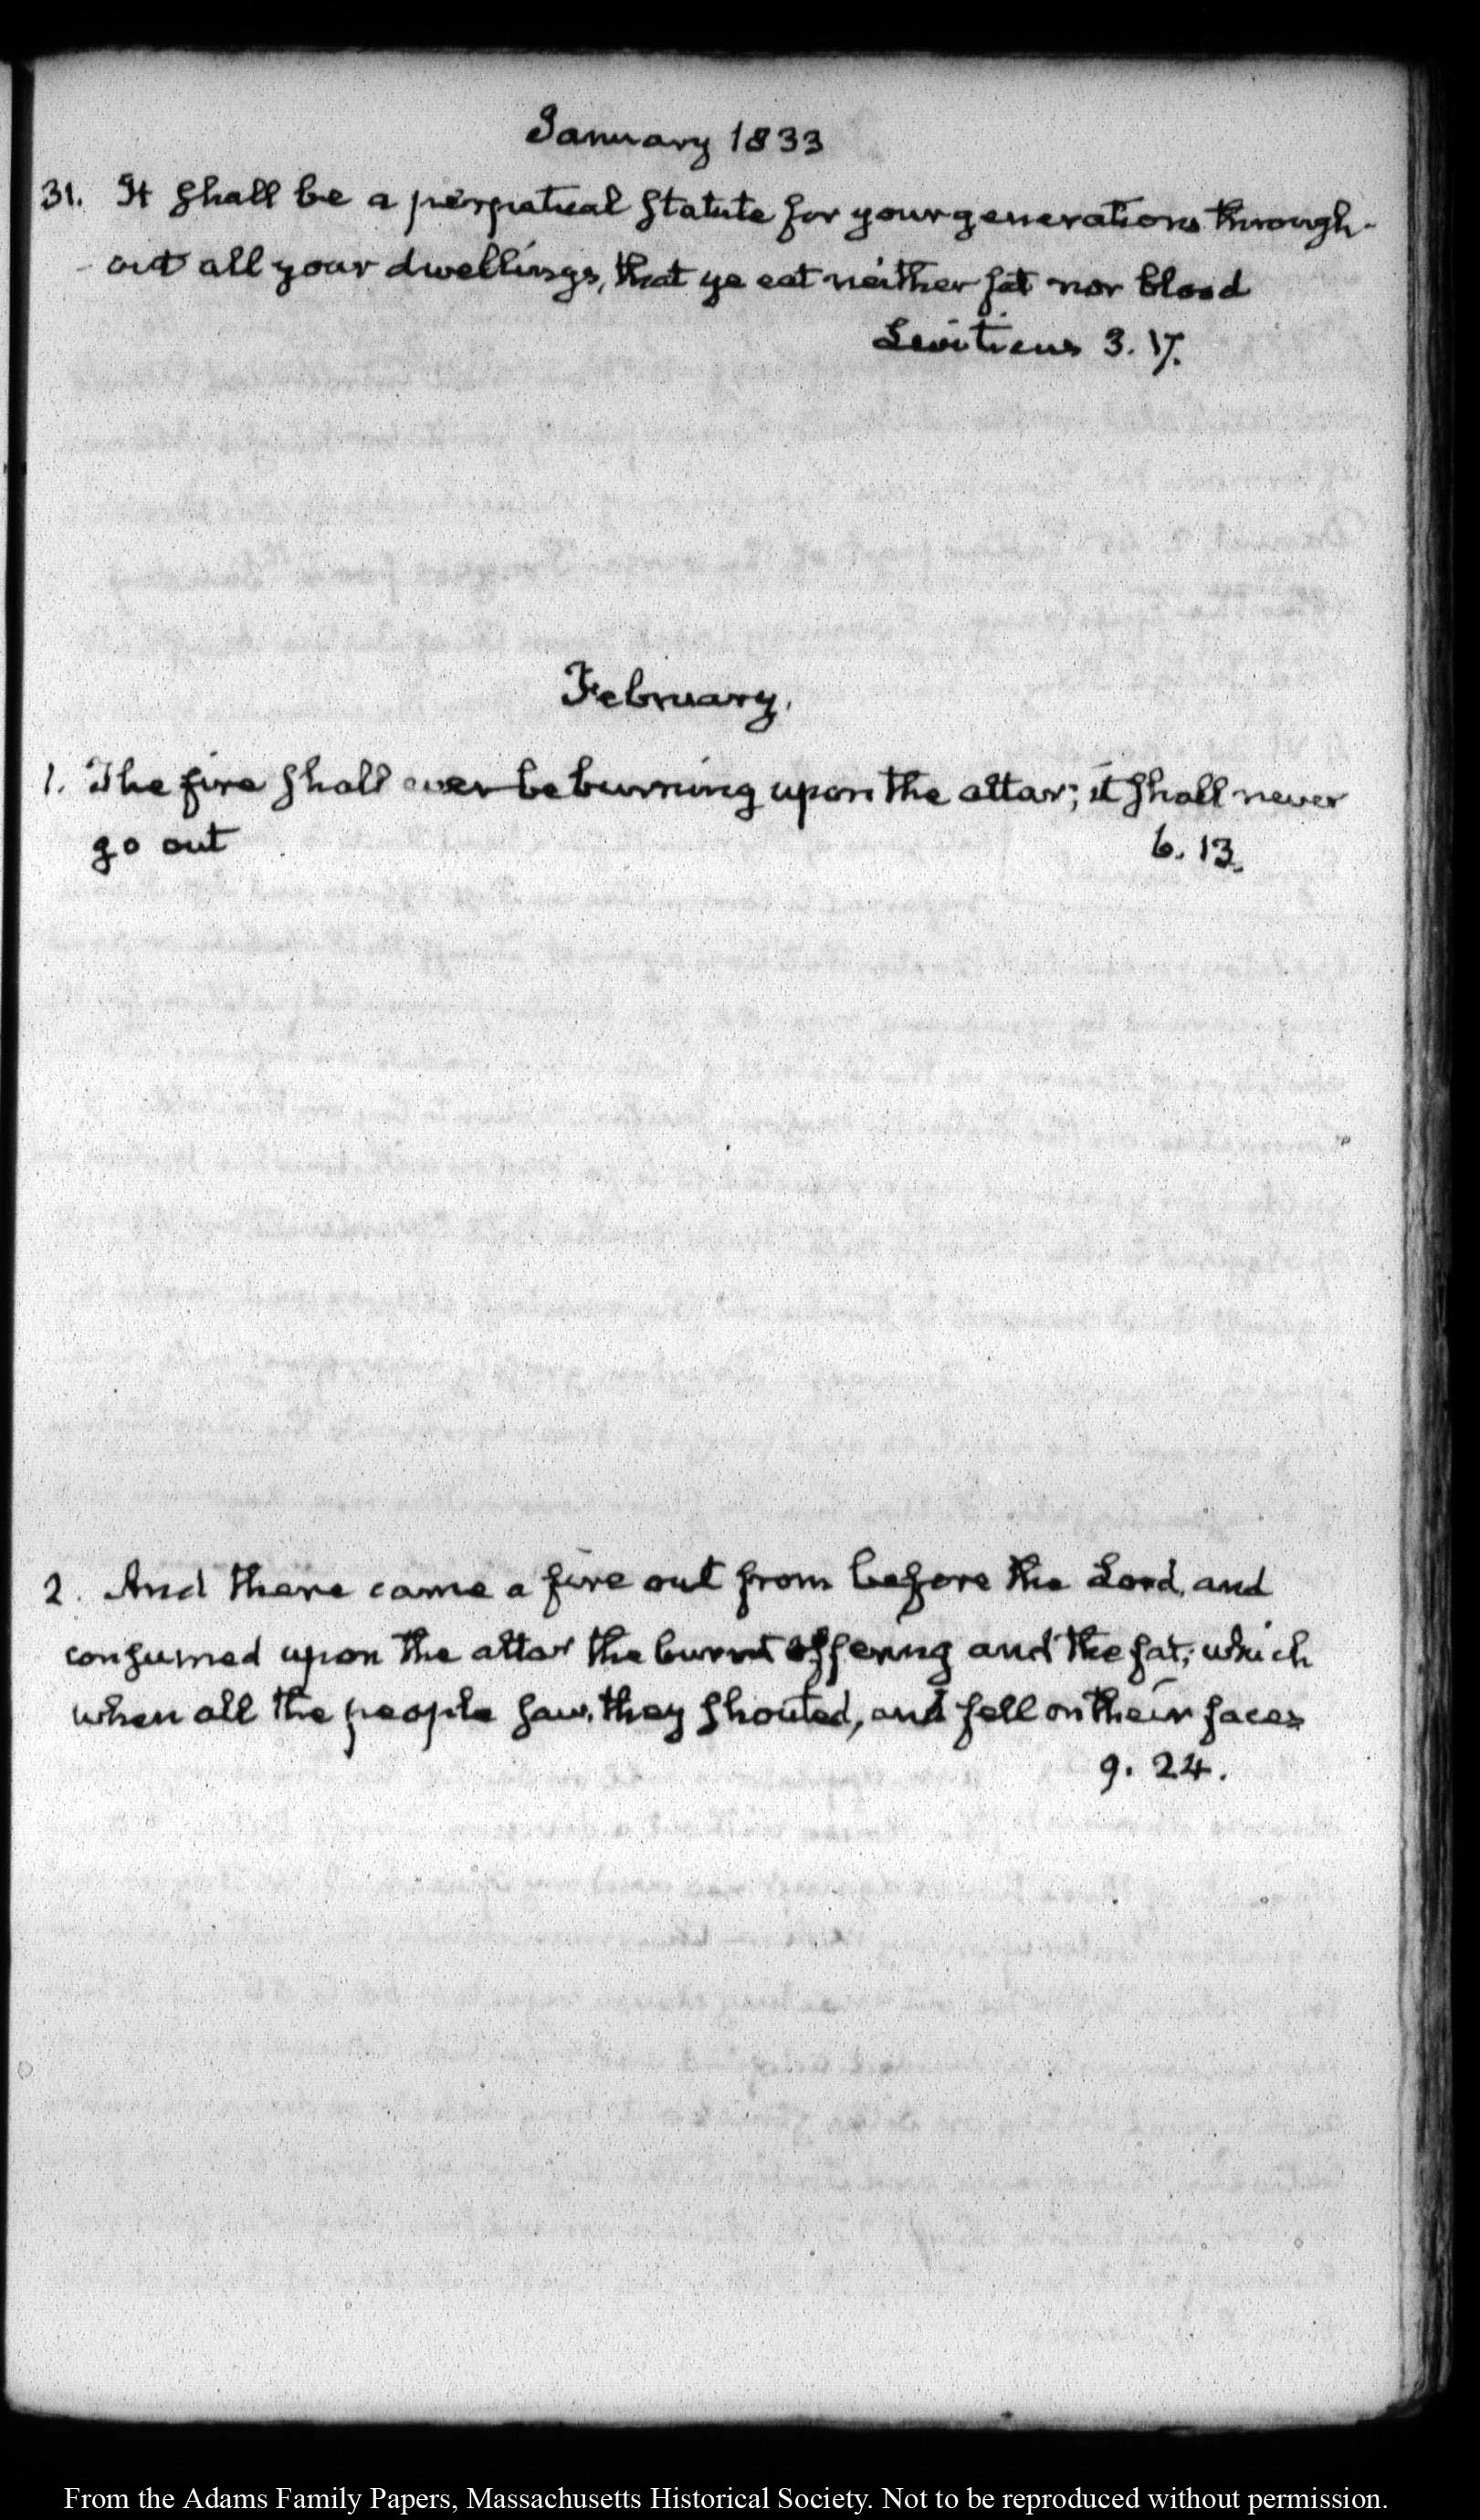 January 1833
31. It shall be a perpetual statute for your generations through-
-out all your dwellings, that ye eat neither fat nor blood
Leviticus 3. 17.
February.
1. The fire shall ever be burning upon the altar; it shall never
go out 6. 13.
2. And there came a fire out from before the Lord, and
consumed upon the altar the burnt offering and the fat; which
when all the people saw, they shouted, and fell on their faces
9. 24.
From the Adams Family Papers, Massachusetts Historical Society. Not to be reproduced without permission.